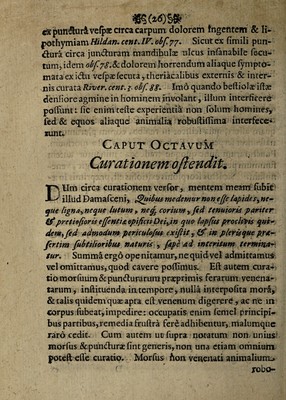 (26)
ex punctura vespæ circa carpum dolorem ingentem & li-
pothymiam Hildan. cent. IV. obs. 77. Sicut ex simili pun-
ctura circa juncturam mandibulæ ulcus insanabile secu-
tum, idem obs. 78. & dolorem horrendum aliaque sympto-
mata ex ictu vespæ secuta, theriacalibus externis & inter-
nis curata River. cent. 3. obs. 88. Imò quando bestiolæ istæ
densiore agmine in hominem involant, illum interficere
possunt: sic enim teste experientia non solum homines,
sed & equos aliaque animalia robustissima interfece-
runt.
CAPUT OCTAVUM
Curationem ostendit.
DUm circa curationem versor, mentem meam subit
illud Damasceni, Quibus medemur non esse lapides, ne-
que ligna, neque lutum, neq; corium, sed tenuioris panter
& pretiosioris essentiæ opificii Dei, in quo lapsus proclivis qui-
dem, sed admodum periculosus existit, & in plerisque præ-
sertim subtilioribus naturis, sæpè ad interitum termina-
tur. Summâ ergò ope nitamur, ne quid vel admittamus
vel omittamus, quod cavere possimus. Est autem cura-
tio morsuum & puncturarum præprimis ferarum venena-
tarum, instituenda in tempore, nullâ interpositâ morâ,
& talis quidem quæ apta est venenum digerere, ac ne in
corpus subeat, impedire: occupatis enim semel principi-
bus partibus, remedia frustrà ferè adhibentur, malumque
rarò cedit. Cum autem ut supra notatum non unius
morsus & puncturæ sint generis, non una etiam omnium
potest esse curatio. Morsus non venenati animalium
robo-